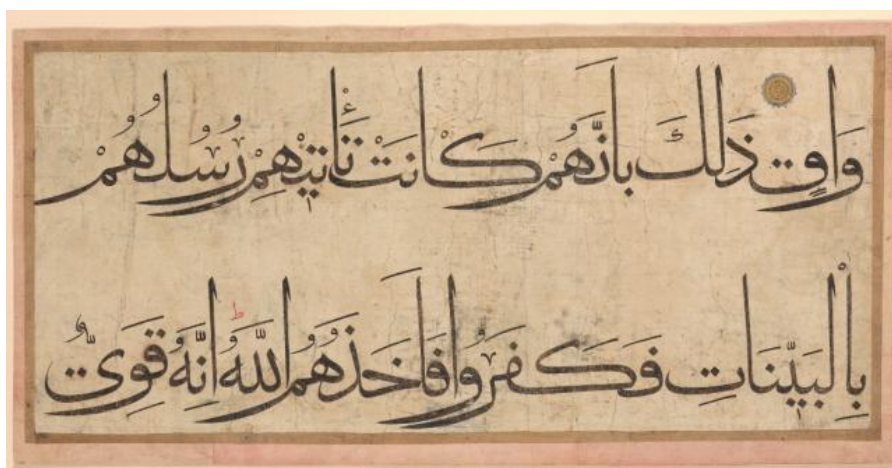 وَاقٍ ذَلِكَ بِاَنَّهُمْ كَانَتْ تَأْتِيهِمْ رُسُلُهُمْ
بِالْبَيِّنَاتِ فَكَفَرُوا فَاَخَذَهُمُ اللّٰهُ ط اِنَّهُ قَوِىٌّ